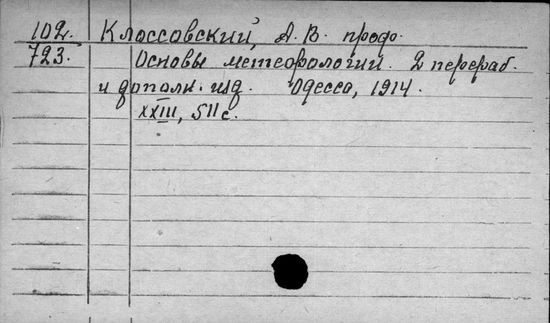 102. Клоссовский, А. В. проф.
723. Основы метеорологии. 2 перераб.
и дополн. изд. Одесса, 1914.
XXIII, 511 с.